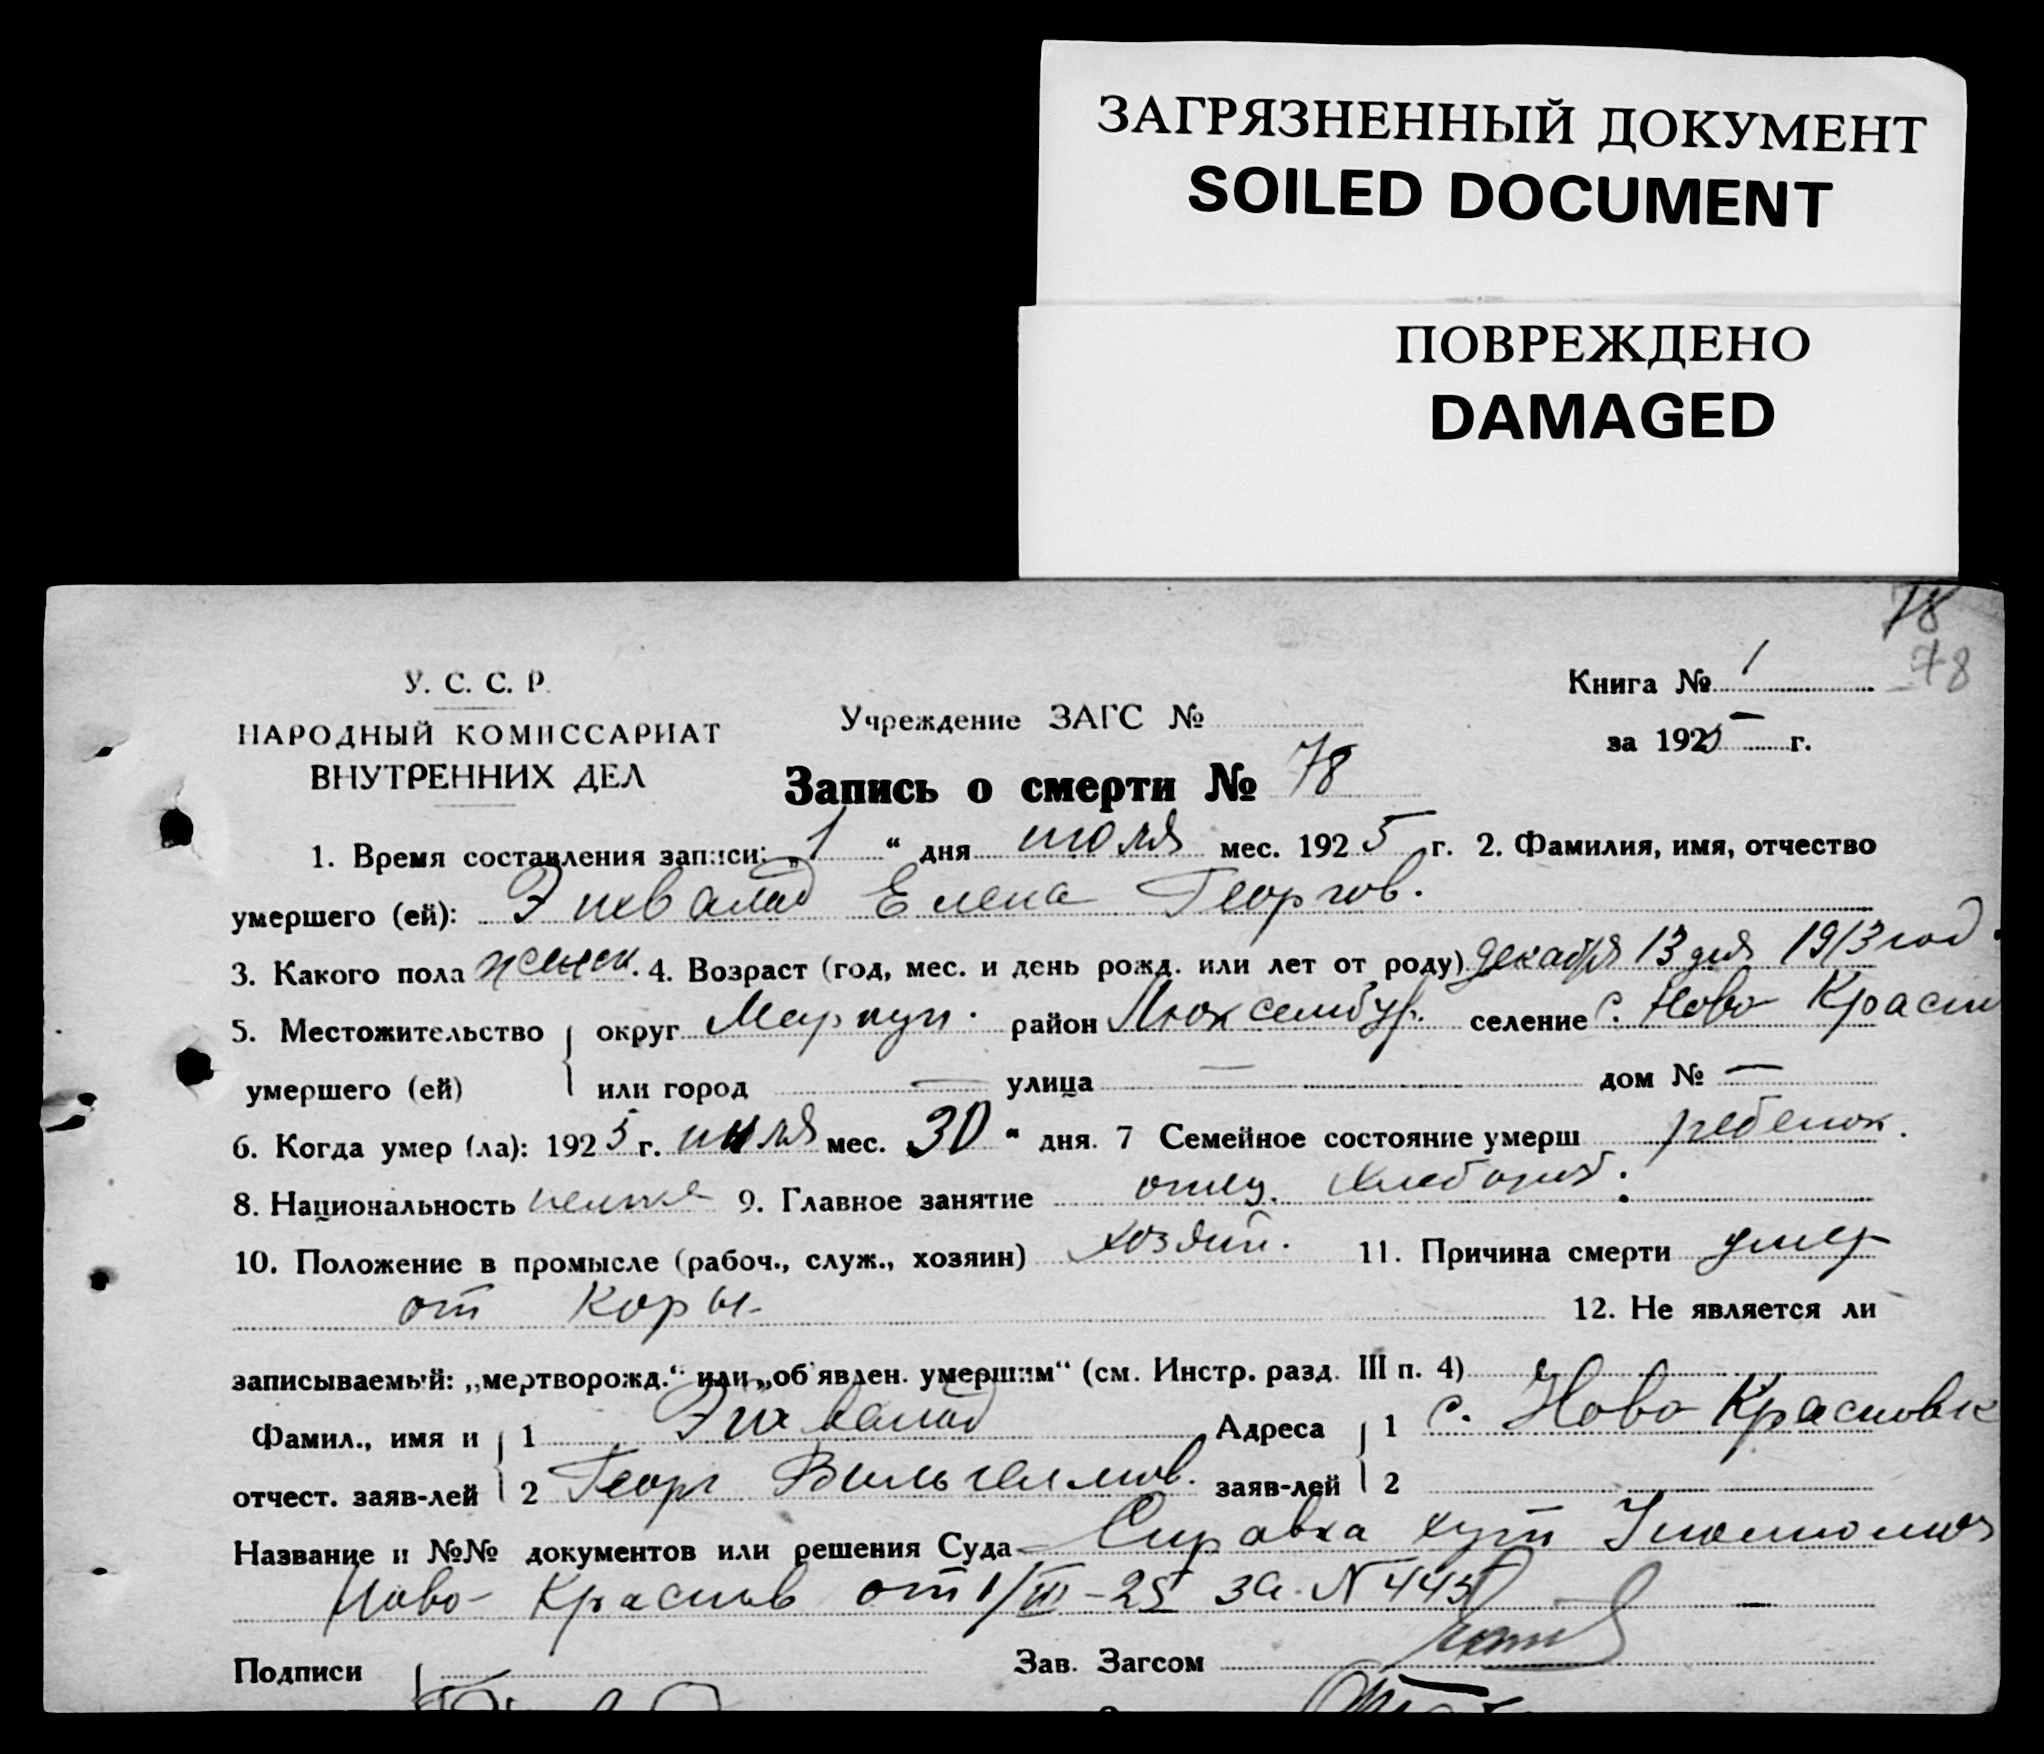 ЗАГРЯЗНЕННЫЙ ДОКУМЕНТ
SOILED DOCUMENT
ПОВРЕЖДЕНО
DAMAGED
78
78
У. С. С. Р.
НАРОДНЫЙ КОМИССАРИАТ
ВНУТРЕННИХ ДЕЛ
Учреждение ЗАГС №
Книга № 1
за 1925 г.
Запись о смерти № 78
1. Время составления записи: „1“ дня июля мес. 1925 г. 2. Фамилия, имя, отчество
умершего (ей): Эихвалд Елена Георгов.
3. Какого пола женск. 4. Возраст (год, мес. и день рожд. или лет от роду) декабря 13 дня 1913 год.
5. Местожительство округ Мариуп. район Люксембур. селение с. Ново Красн
умершего (ей) или город — улица — дом № —
6. Когда умер (ла): 1925 г. июля мес. 30 “ дня. 7 Семейное состояние умерш ребенок.
8. Национальность немка 9. Главное занятие отец. хлебороб.
10. Положение в промысле (рабоч., служ., хозяин) хозяин. 11. Причина смерти умер
от Коры 12. Не является ли
записываемый: „мертворожд.“ или „об'явлен. умершим“ (см. Инстр. разд. III п. 4)
Фамил., имя и 1 Эихвалд Адреса 1 с. Ново Красновк
отчест. заяв-лей 2 Георг Вильгелмов. заяв-лей 2
Название и №№ документов или решения Суда Справка хут
Ново-Краснов от 1/VII-25 за N 445
Подписи Зав. Загсом